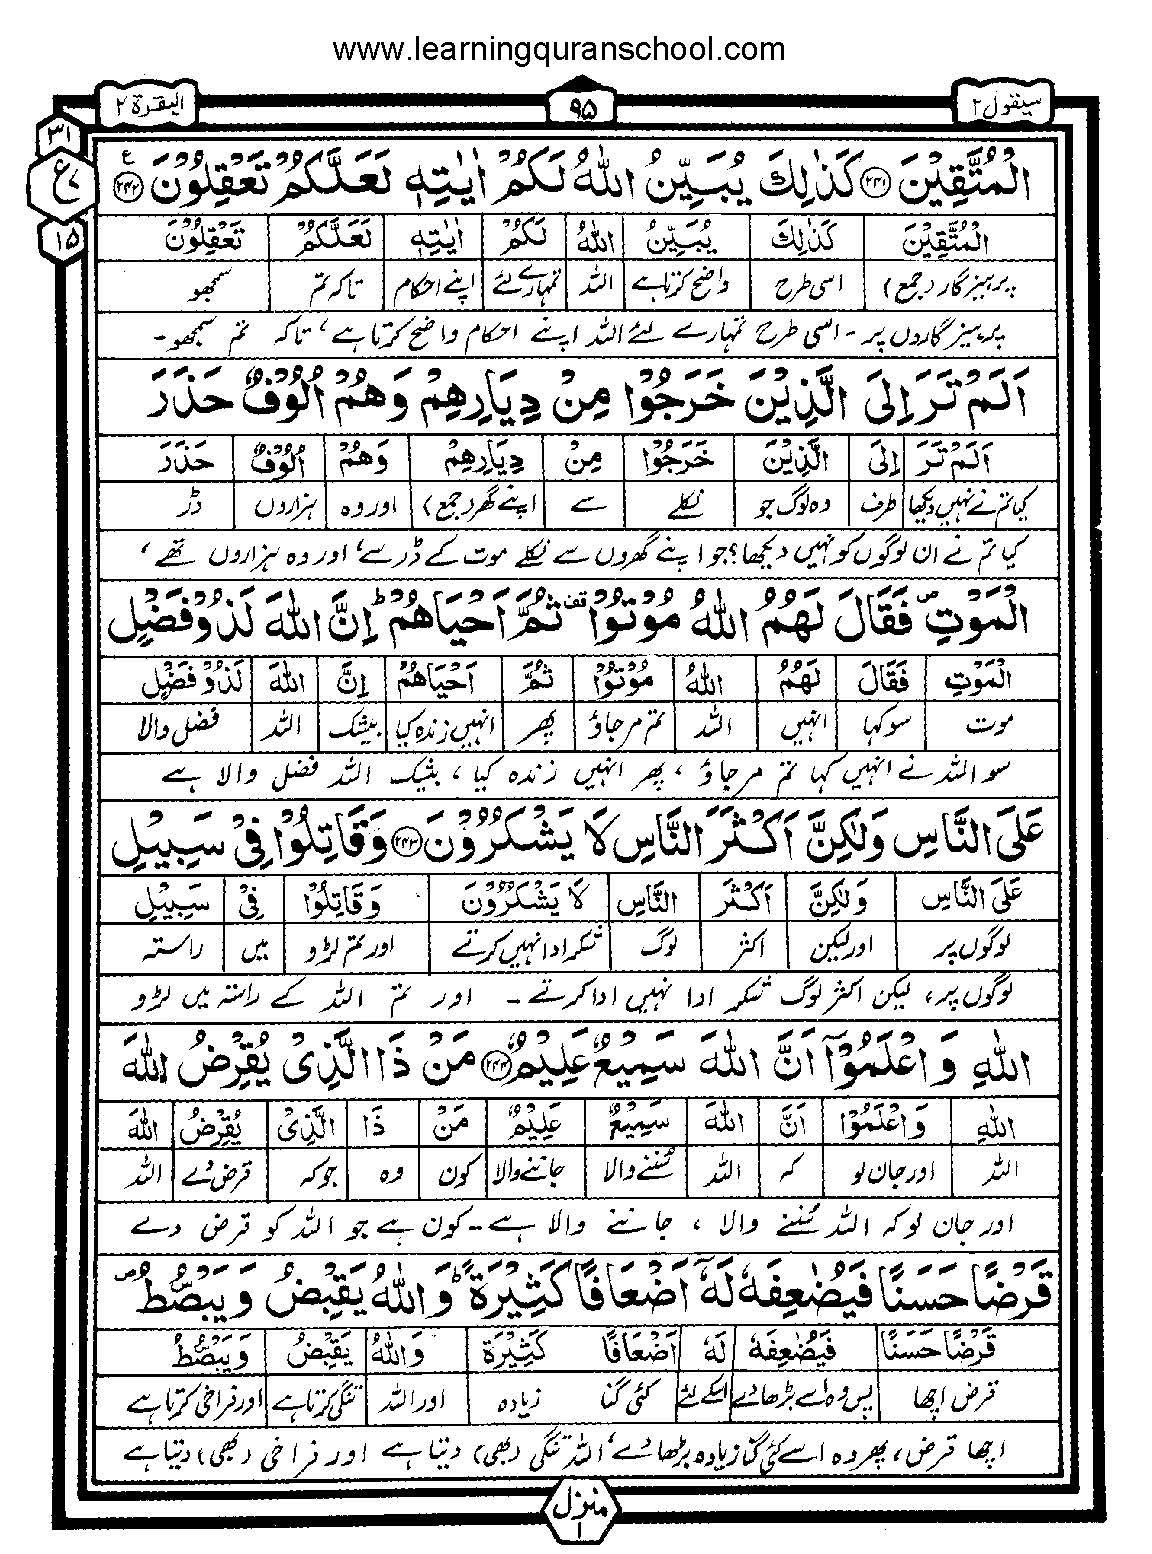 www.learningquranschool.com
سیقول ۲
۹۵
البقرة ۲
۳۱
ع
۷
۱۵
الْمُتَّقِيْنَ ﴿۲۴۱﴾ كَذٰلِكَ يُبَيِّنُ اللّٰهُ لَكُمْ اٰيٰتِهٖ لَعَلَّكُمْ تَعْقِلُوْنَ ﴿۲۴۲﴾ ع
الْمُتَّقِيْنَ كَذٰلِكَ يُبَيِّنُ اللّٰهُ لَكُمْ اٰيٰتِهٖ لَعَلَّكُمْ تَعْقِلُوْنَ
پرہیزگار (جمع) اسی طرح واضح کرتا ہے اللہ تمہارے لئے اپنے احکام تاکہ تم سمجھو
پرہیزگاروں پر - اسی طرح تمہارے لئے اللہ اپنے احکام واضح کرتا ہے، تاکہ تم سمجھو -
اَلَمْ تَرَ اِلَى الَّذِيْنَ خَرَجُوْا مِنْ دِيَارِهِمْ وَهُمْ اُلُوْفٌ حَذَرَ
اَلَمْ تَرَ اِلَى الَّذِيْنَ خَرَجُوْا مِنْ دِيَارِهِمْ وَهُمْ اُلُوْفٌ حَذَرَ
کیا تم نے نہیں دیکھا طرف وہ لوگ جو نکلے سے اپنے گھر (جمع) اور وہ ہزاروں ڈر
کیا تم نے ان لوگوں کو نہیں دیکھا؟ جو اپنے گھروں سے نکلے موت کے ڈر سے، اور وہ ہزاروں تھے،
الْمَوْتِ ۪ فَقَالَ لَهُمُ اللّٰهُ مُوْتُوْا ۟قف ثُمَّ اَحْيَاهُمْ ؕ اِنَّ اللّٰهَ لَذُوْ فَضْلٍ
الْمَوْتِ فَقَالَ لَهُمُ اللّٰهُ مُوْتُوْا ثُمَّ اَحْيَاهُمْ اِنَّ اللّٰهَ لَذُوْ فَضْلٍ
موت سو کہا انہیں اللہ تم مر جاؤ پھر انہیں زندہ کیا بیشک اللہ فضل والا
سو اللہ نے انہیں کہا تم مر جاؤ، پھر انہیں زندہ کیا، بیشک اللہ فضل والا ہے
عَلَى النَّاسِ وَلٰكِنَّ اَكْثَرَ النَّاسِ لَا يَشْكُرُوْنَ ﴿۲۴۳﴾ وَقَاتِلُوْا فِيْ سَبِيْلِ
عَلَى النَّاسِ وَلٰكِنَّ اَكْثَرَ النَّاسِ لَا يَشْكُرُوْنَ وَقَاتِلُوْا فِيْ سَبِيْلِ
لوگوں پر اور لیکن اکثر لوگ شکر ادا نہیں کرتے اور تم لڑو میں راستہ
لوگوں پر، لیکن اکثر لوگ شکر ادا نہیں ادا کرتے - اور تم اللہ کے راستہ میں لڑو
اللّٰهِ وَاعْلَمُوْٓا اَنَّ اللّٰهَ سَمِيْعٌ عَلِيْمٌ ﴿۲۴۴﴾ مَنْ ذَا الَّذِيْ يُقْرِضُ اللّٰهَ
اللّٰهِ وَاعْلَمُوْا اَنَّ اللّٰهَ سَمِيْعٌ عَلِيْمٌ مَنْ ذَا الَّذِيْ يُقْرِضُ اللّٰهَ
اللہ اور جان لو کہ اللہ سُننے والا جاننے والا کون وہ جو کہ قرض دے اللہ
اور جان لو کہ اللہ سُننے والا، جاننے والا ہے - کون ہے جو اللہ کو قرض دے
قَرْضًا حَسَنًا فَيُضٰعِفَهٗ لَهٗٓ اَضْعَافًا كَثِيْرَةً ؕ وَاللّٰهُ يَقْبِضُ وَيَبْصُۜطُ ۪
قَرْضًا حَسَنًا فَيُضٰعِفَهٗ لَهٗ اَضْعَافًا كَثِيْرَةً وَاللّٰهُ يَقْبِضُ وَيَبْصُۜطُ
قرض اچھا پس وہ اسے بڑھا دے اسکے لئے کئی گنا زیادہ اور اللہ تنگی کرتا ہے اور فراخی کرتا ہے
اچھا قرض، پھر وہ اسے کئی گنا زیادہ بڑھا دے، اللہ تنگی (بھی) دیتا ہے اور فراخی (بھی) دیتا ہے
منزل ۱